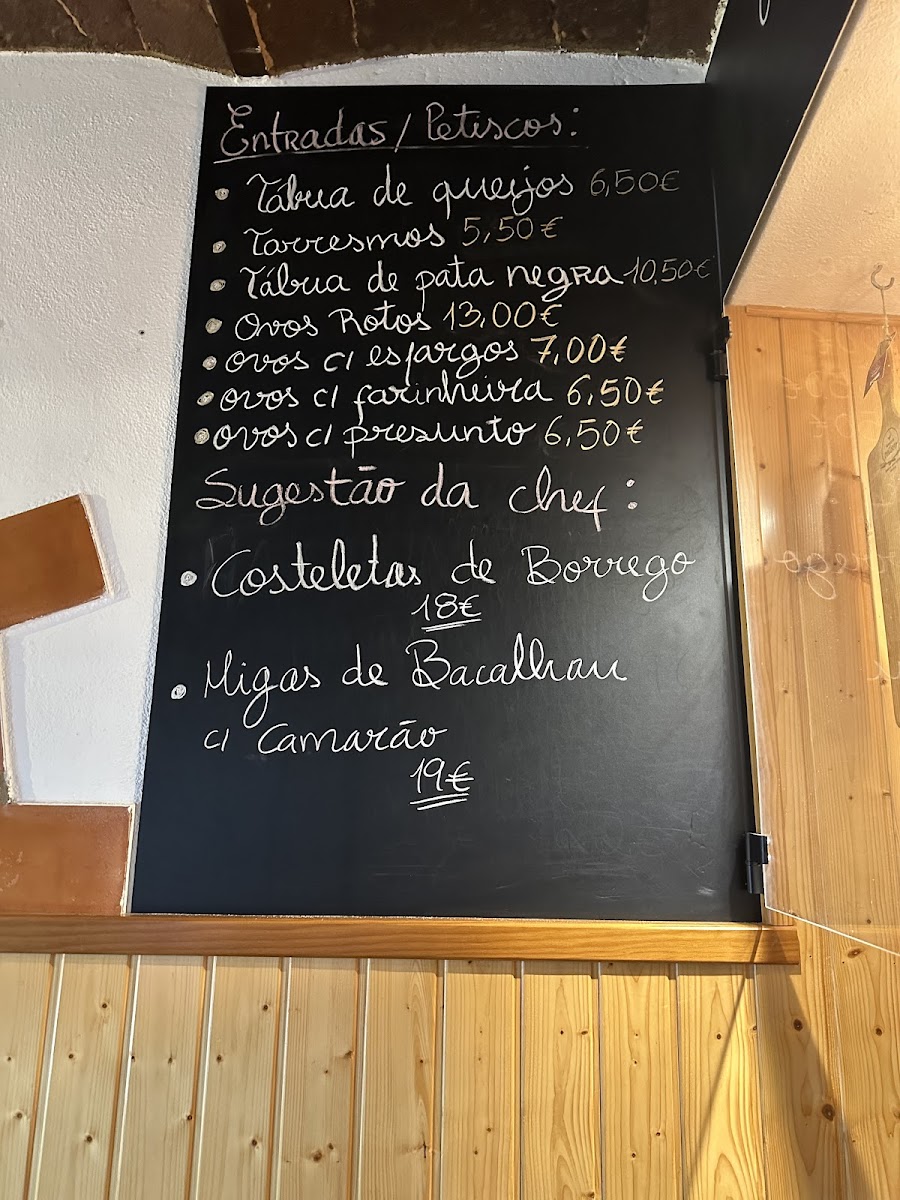 Entradas / Petiscos:
• Tábua de queijos 6,50€
• Torresmos 5,50€
• Tábua de pata negra 10,50€
• Ovos Rotos 13,00€
• ovos c/ espargos 7,00€
• ovos c/ farinheira 6,50€
• ovos c/ presunto 6,50€
Sugestão da chef:
• Costeletas de Borrego
18€
• Migas de Bacalhau
c/ Camarão
19€